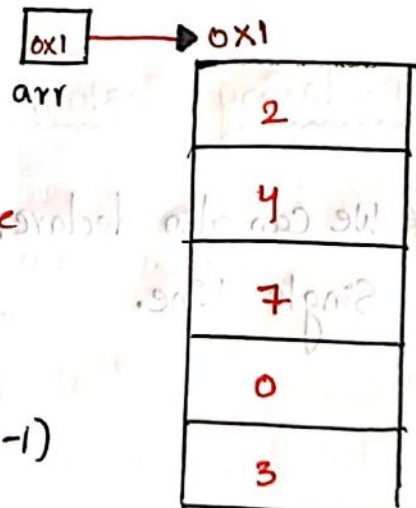 0x1 0x1
arr
2
4
e
7
0
-1)
3